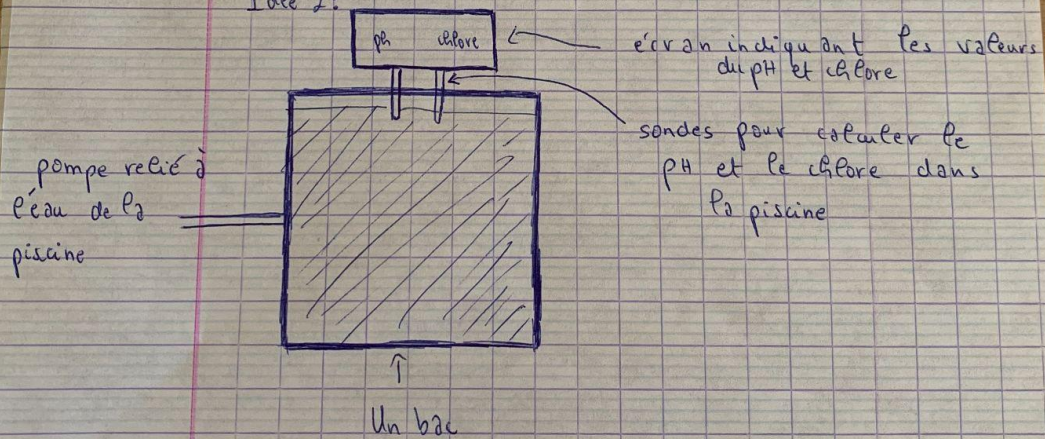 Idée 2:
ph chlore
écran indiquant les valeurs
du pH et chlore
sondes pour calculer le
pH et le chlore dans
la piscine
pompe relié à
l'eau de la
piscine
Un bac